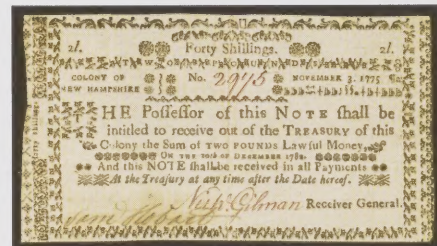 2l. Forty Shillings. 2l.
COLONY OF No. 2975 NOVEMBER 3. 1775
NEW HAMPSHIRE
THE Possessor of this NOTE shall be
intitled to receive out of the TREASURY of this
Colony the Sum of TWO POUNDS Lawful Money,
ON THE 20th OF DECEMBER 1782.
And this NOTE shall be received in all Payments
At the Treasury at any time after the Date hereof.
Gilman Receiver General.